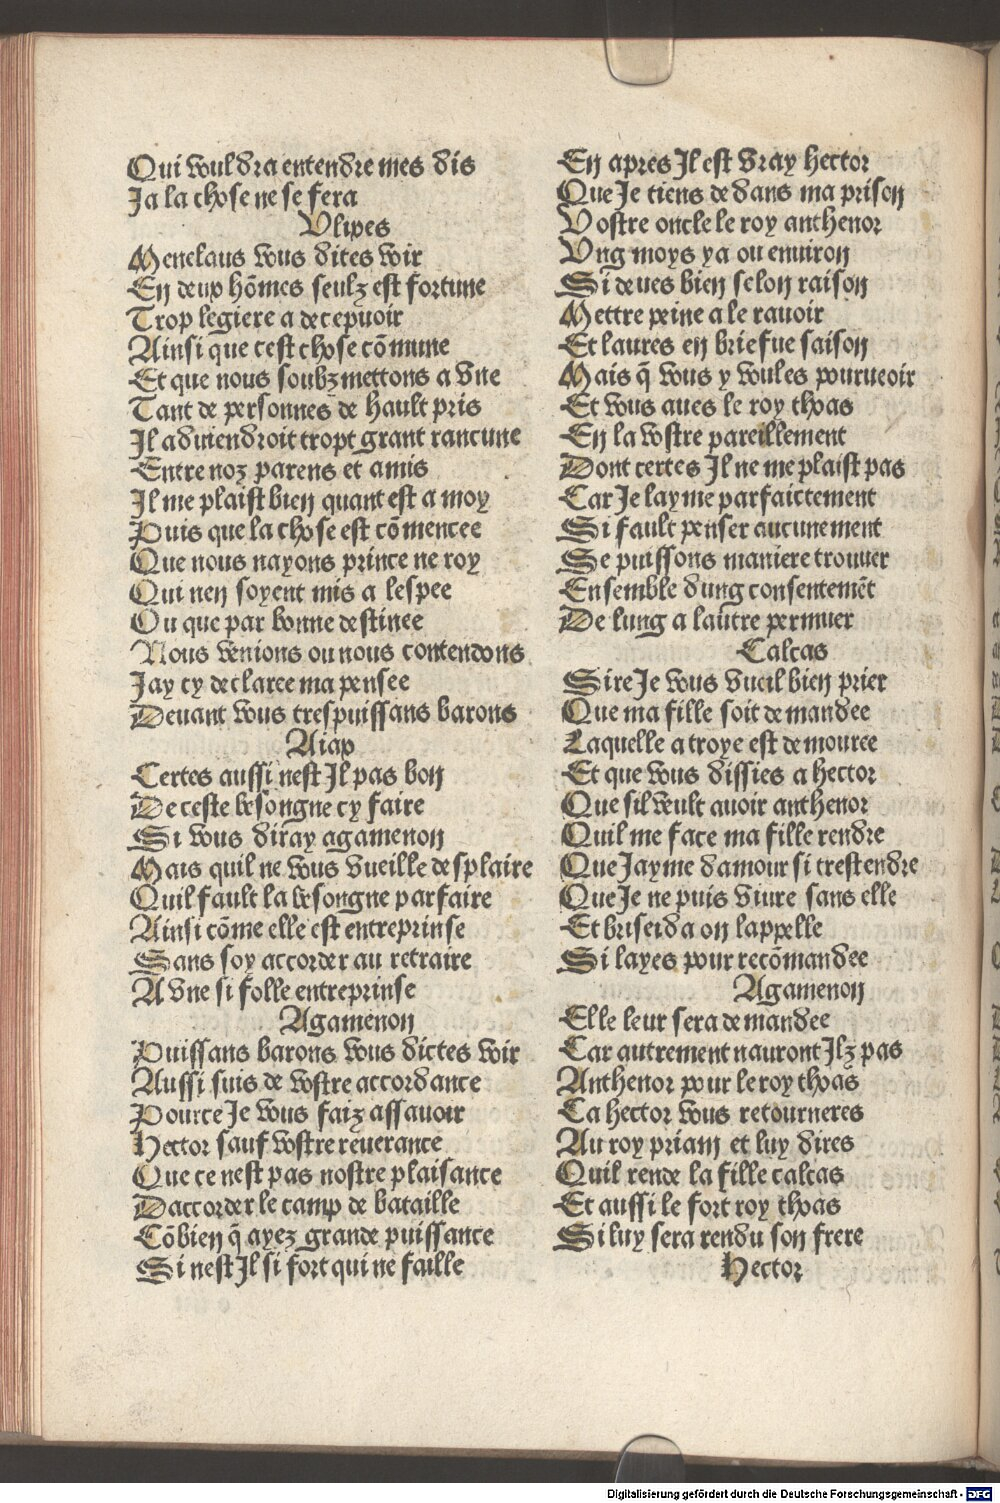 Qui vouldra entendre mes dis
Ja la chose ne se fera
Vlixes
Menelaus vous dites voir
En deux hõmes seulz est fortune
Trop legiere a decepuoir
Ainsi que cest chose cõmune
Et que nous soubzmettons a vne
Tant de personnes de hault pris
Il aduiendroit tropt grant rancune
Entre noz parens et amis
Il me plaist bien quant est a moy
Puis que la chose est cõmencee
Que nous nayons prince ne roy
Qui nen soyent mis a lespee
Ou que par bonne destinee
Nous venions ou nous contendons
Jay cy declaree ma pensee
Deuant vous trespuissans barons
Aiax
Certes aussi nest Il pas bon
De ceste besongne cy faire
Si vous diray agamenon
Mais quil ne vous vueille desplaire
Quil fault la besongne parfaire
Ainsi cõme elle est entreprinse
Sans soy accorder au retraire
A vne si folle entreprinse
Agamenon
Puissans barons vous dictes voir
Aussi suis de vostre accordance
Pource Je vous faiz assauoir
Hector sauf vostre reuerance
Que ce nest pas nostre plaisance
Daccorder le camp de bataille
Cõbien q̃ ayez grande puissance
Si nest Il si fort qui ne faille
En apres Il est vray hector
Que Je tiens de dans ma prison
Vostre oncle le roy anthenor
Vng moys ya ou enuiron
Si deues bien selon raison
Mettre peine a le rauoir
Et laures en briefue saison
Mais q̃ vous y voules pourueoir
Et vous aues le roy thoas
En la vostre pareillement
Dont certes Il ne me plaist pas
Car Je layme parfaictement
Si fault penser aucunement
Se puissons maniere trouuer
Ensemble dung consentemẽt
De lung a lautre permuer
Calcas
Sire Je vous vueil bien prier
Que ma fille soit demandee
Laquelle a troye est demouree
Et que vous dissies a hector
Que sil veult auoir anthenor
Quil me face ma fille rendre
Que Jayme damour si trestendre
Que Je ne puis viure sans elle
Et briseida on lappelle
Si layes pour recõmandee
Agamenon
Elle leur sera demandee
Car autrement nauront Ilz pas
Anthenor pour le roy thoas
Ca hector vous retourneres
Au roy priam et luy dires
Quil rende la fille calcas
Et aussi le fort roy thoas
Si luy sera rendu son frere
Hector
Digitalisierung gefördert durch die Deutsche Forschungsgemeinschaft - DFG